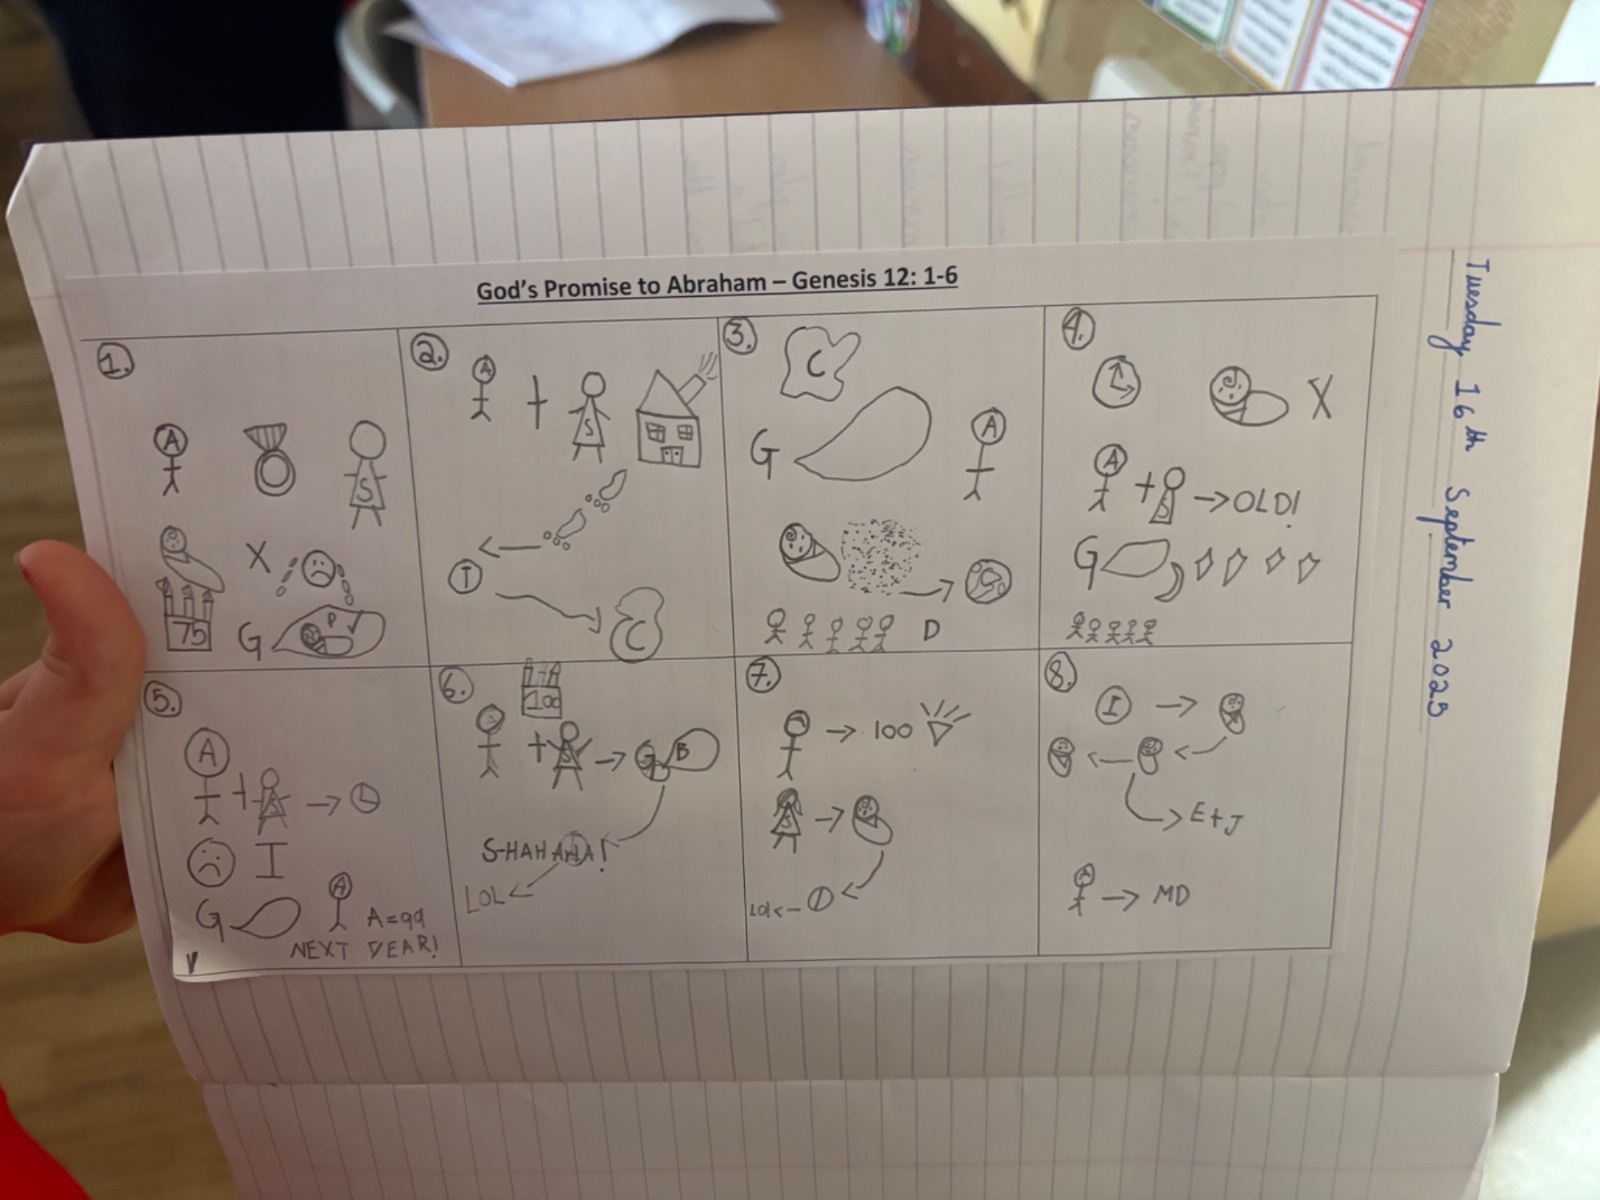 God's Promise to Abraham – Genesis 12: 1-6
Tuesday 16th September 2025
1.
A
S
X
75
G
P
2.
A + S
T
C
3.
C
G
A
D
4.
X
A + S → OLD!
G
5.
A
+ →
I
G
A
A=99
NEXT YEAR!
6.
100
+ S → G B
S-HAHAHA!
LOL ←
7.
→ 100
S →
LOL ← I
8.
I →
←
→ E+J
A → MD